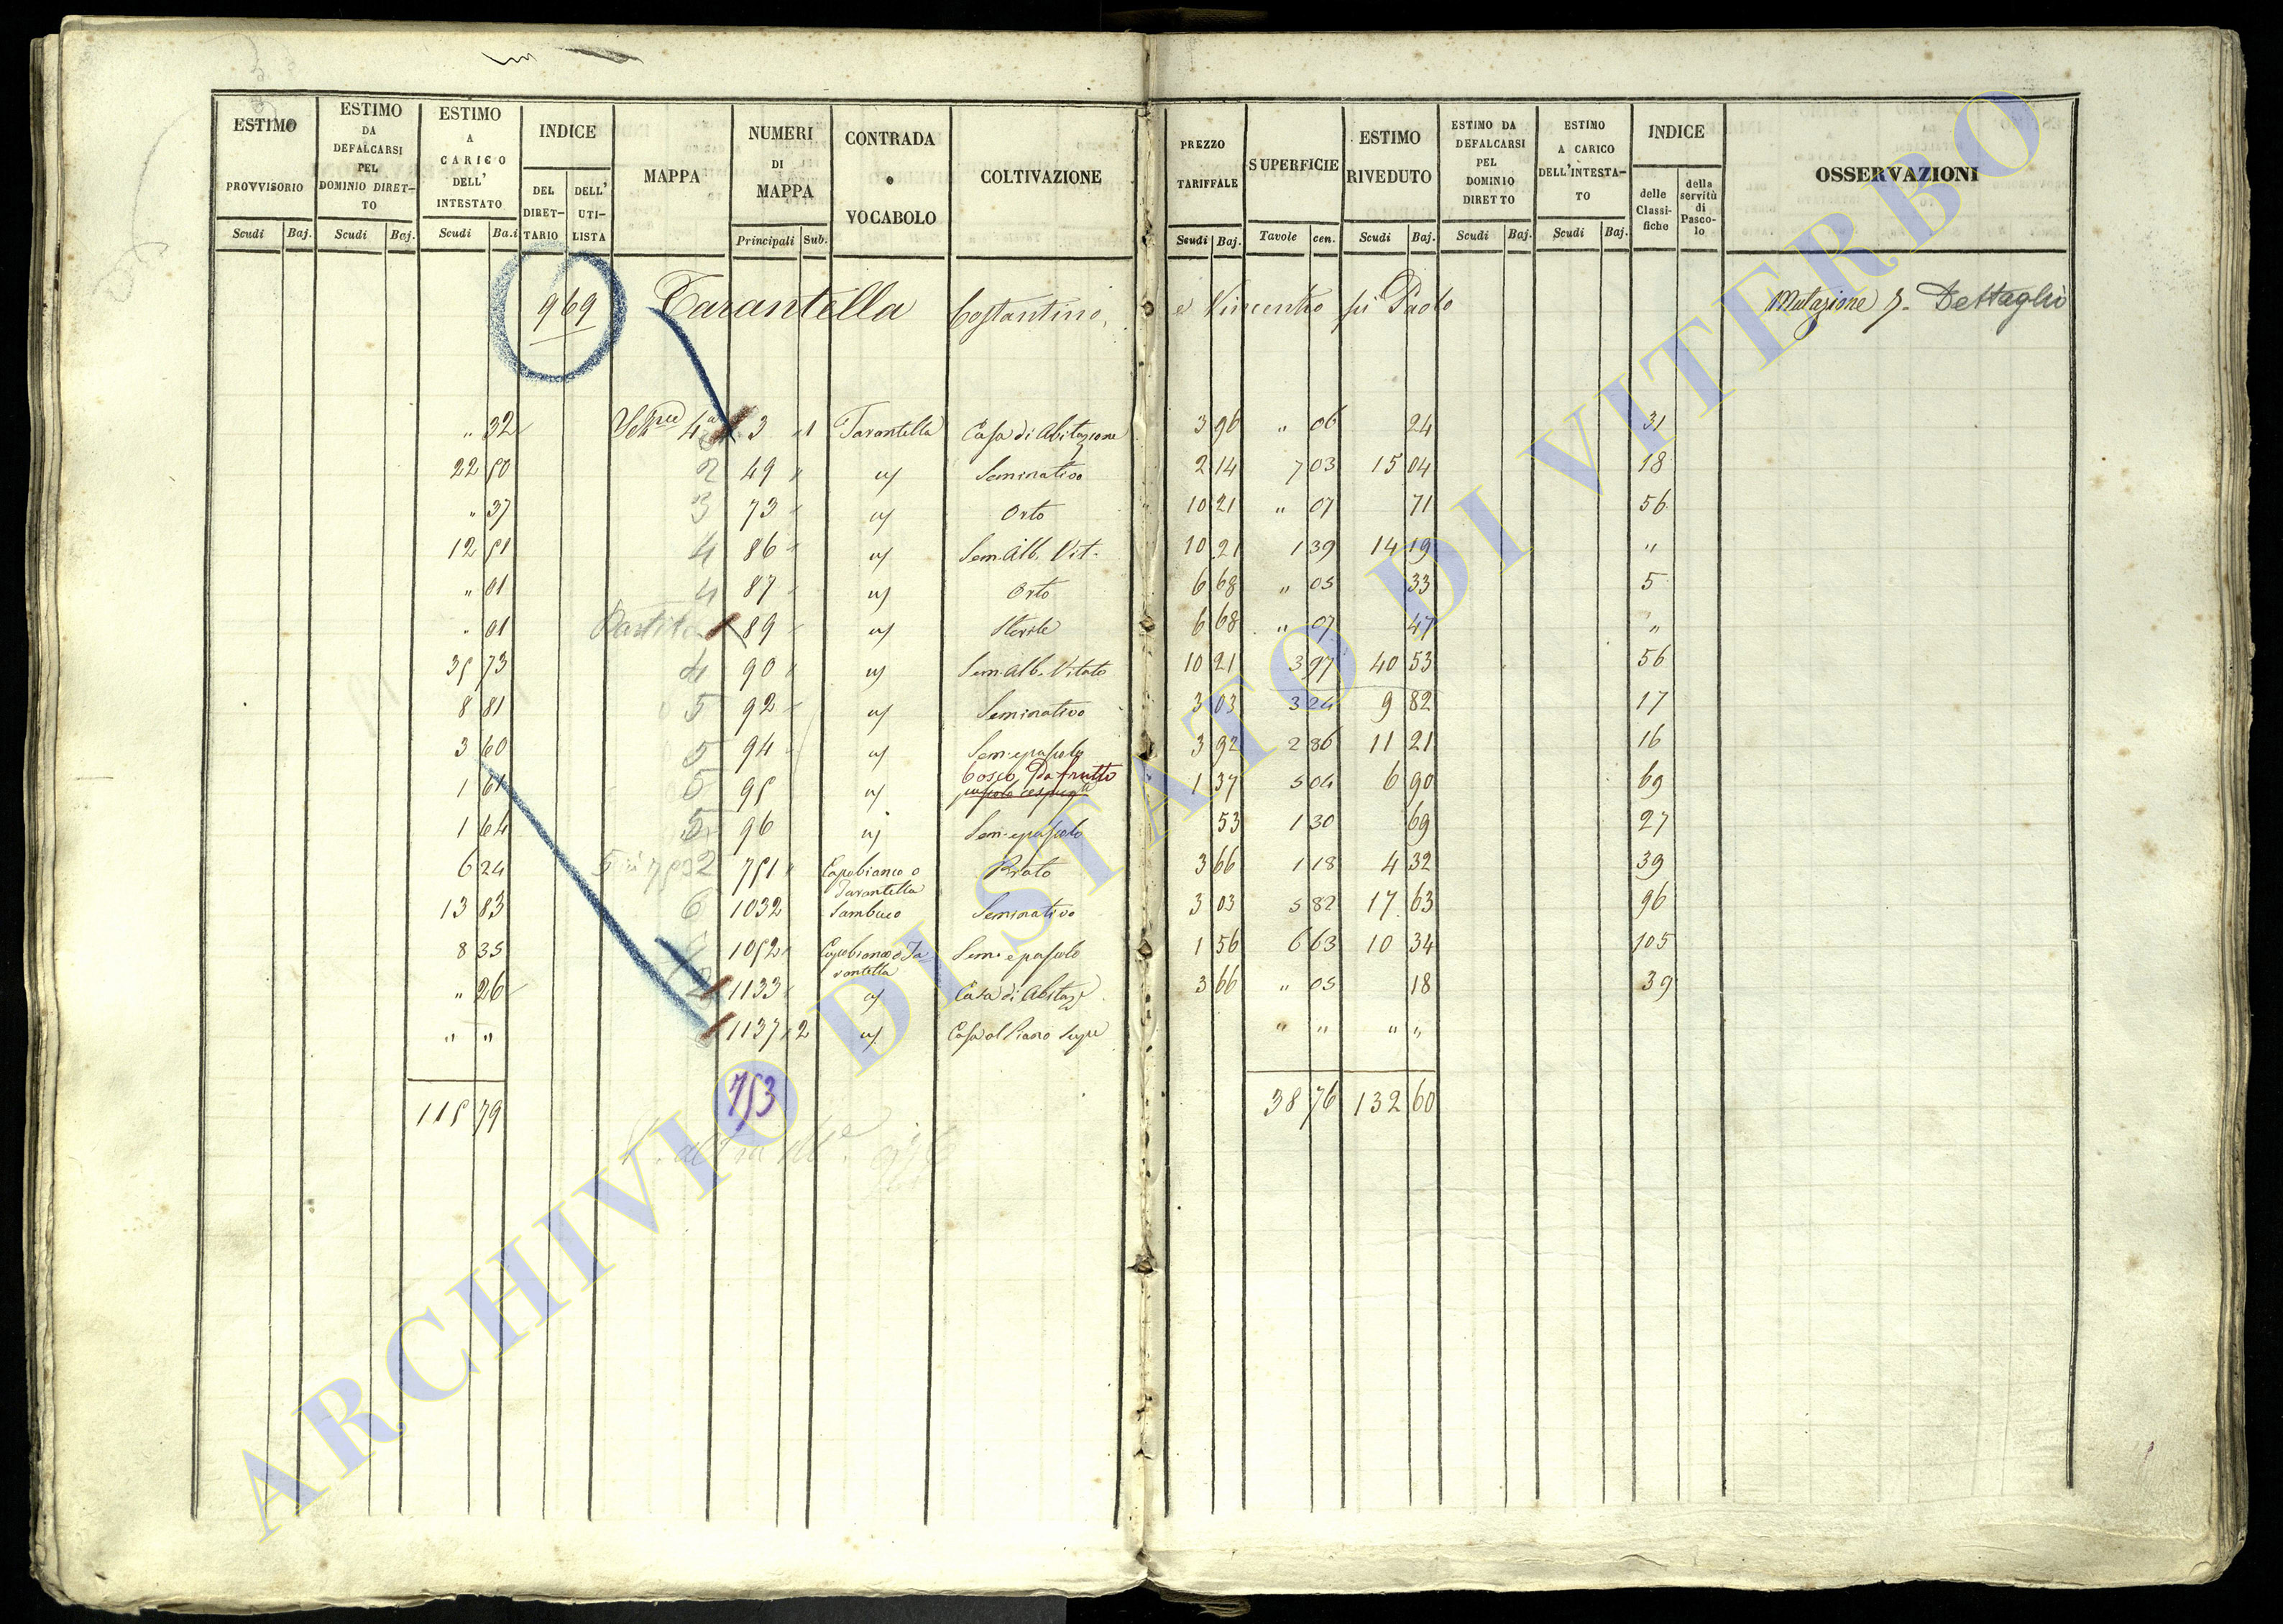 ESTIMO PROVVISORIO Scudi Baj.
ESTIMO DA DEFALCARSI PEL DOMINIO DIRETTO Scudi Baj.
ESTIMO A CARICO DELL' INTESTATO Scudi Ba.i
INDICE DEL DIRETTARIO DELL' UTILISTA
MAPPA
NUMERI DI MAPPA Principali Sub.
CONTRADA o VOCABOLO
COLTIVAZIONE
PREZZO TARIFFALE Scudi Baj.
SUPERFICIE Tavole cen.
ESTIMO RIVEDUTO Scudi Baj.
ESTIMO DA DEFALCARSI PEL DOMINIO DIRETTO Scudi Baj.
ESTIMO A CARICO DELL'INTESTATO Scudi Baj.
INDICE delle Classifiche della servitù di Pascolo
OSSERVAZIONI
969 Tarantella Costantino, e Vincenzo fu Paolo Mutazione 7. Dettaglio
" 32 4a 3 1 Tarantella Casa di Abitazione 3 96 " 06 24 31
22 50 2 49 " Seminativo 2 14 7 03 15 04 18
" 37 3 73 " Orto 10 21 " 07 71 56
12 51 4 86 " Sem. Alb. Vit. 10 21 1 39 14 19 "
" 01 4 87 " Orto 6 68 " 05 33 5
" 01 89 " Sterile 6 68 " 07 47 "
35 73 4 90 " Sem. Alb. Vitato 10 21 3 97 40 53 56
8 81 5 92 " Seminativo 3 03 3 24 9 82 17
3 60 5 94 " Sem. e pascolo 3 92 2 86 11 21 16
1 61 5 95 bosco Da frutto 1 37 5 04 6 90 69
pascolo cespugto
1 64 5 96 Sem. e pascolo 53 1 30 69 27
6 24 751 " Capobianco o Tarantella Prato 3 66 1 18 4 32 39
13 83 6 1032 Sambuco Seminativo 3 03 5 82 17 63 96
8 35 1052 " Capobianco o Tarantella Sem. e pascolo 1 56 6 63 10 34 105
" 26 2 1133 " Casa di Abitaze 3 66 " 05 18 39
" " 1137 2 Casa al Piano Supre " " " "
753
115 79 38 76 132 60
ARCHIVIO DI STATO DI VITERBO